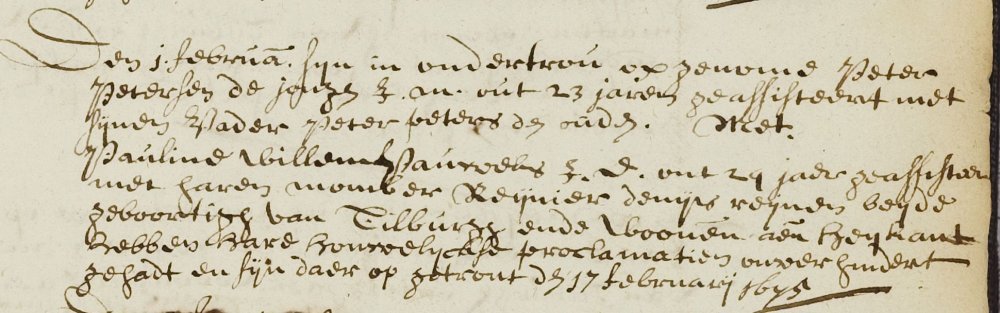 Den 1. februa: sijn in ondertrou opgenome Peter
Petersen de jonge J. m. out 23 jaren geassisteert met
sijnen Vader Peter peters de oude. Met.
Pauline Willem Pauwels J. d. out 24 jaer geassisteer
met haren momber Reijnier denijs reijnen beijde
geboortigh van Tilburgh ende woonen aen heijkant
hebben hare houwelyckse proclamatien onverhindert
gehadt en sijn daer op getrout den 17 februarij 1675